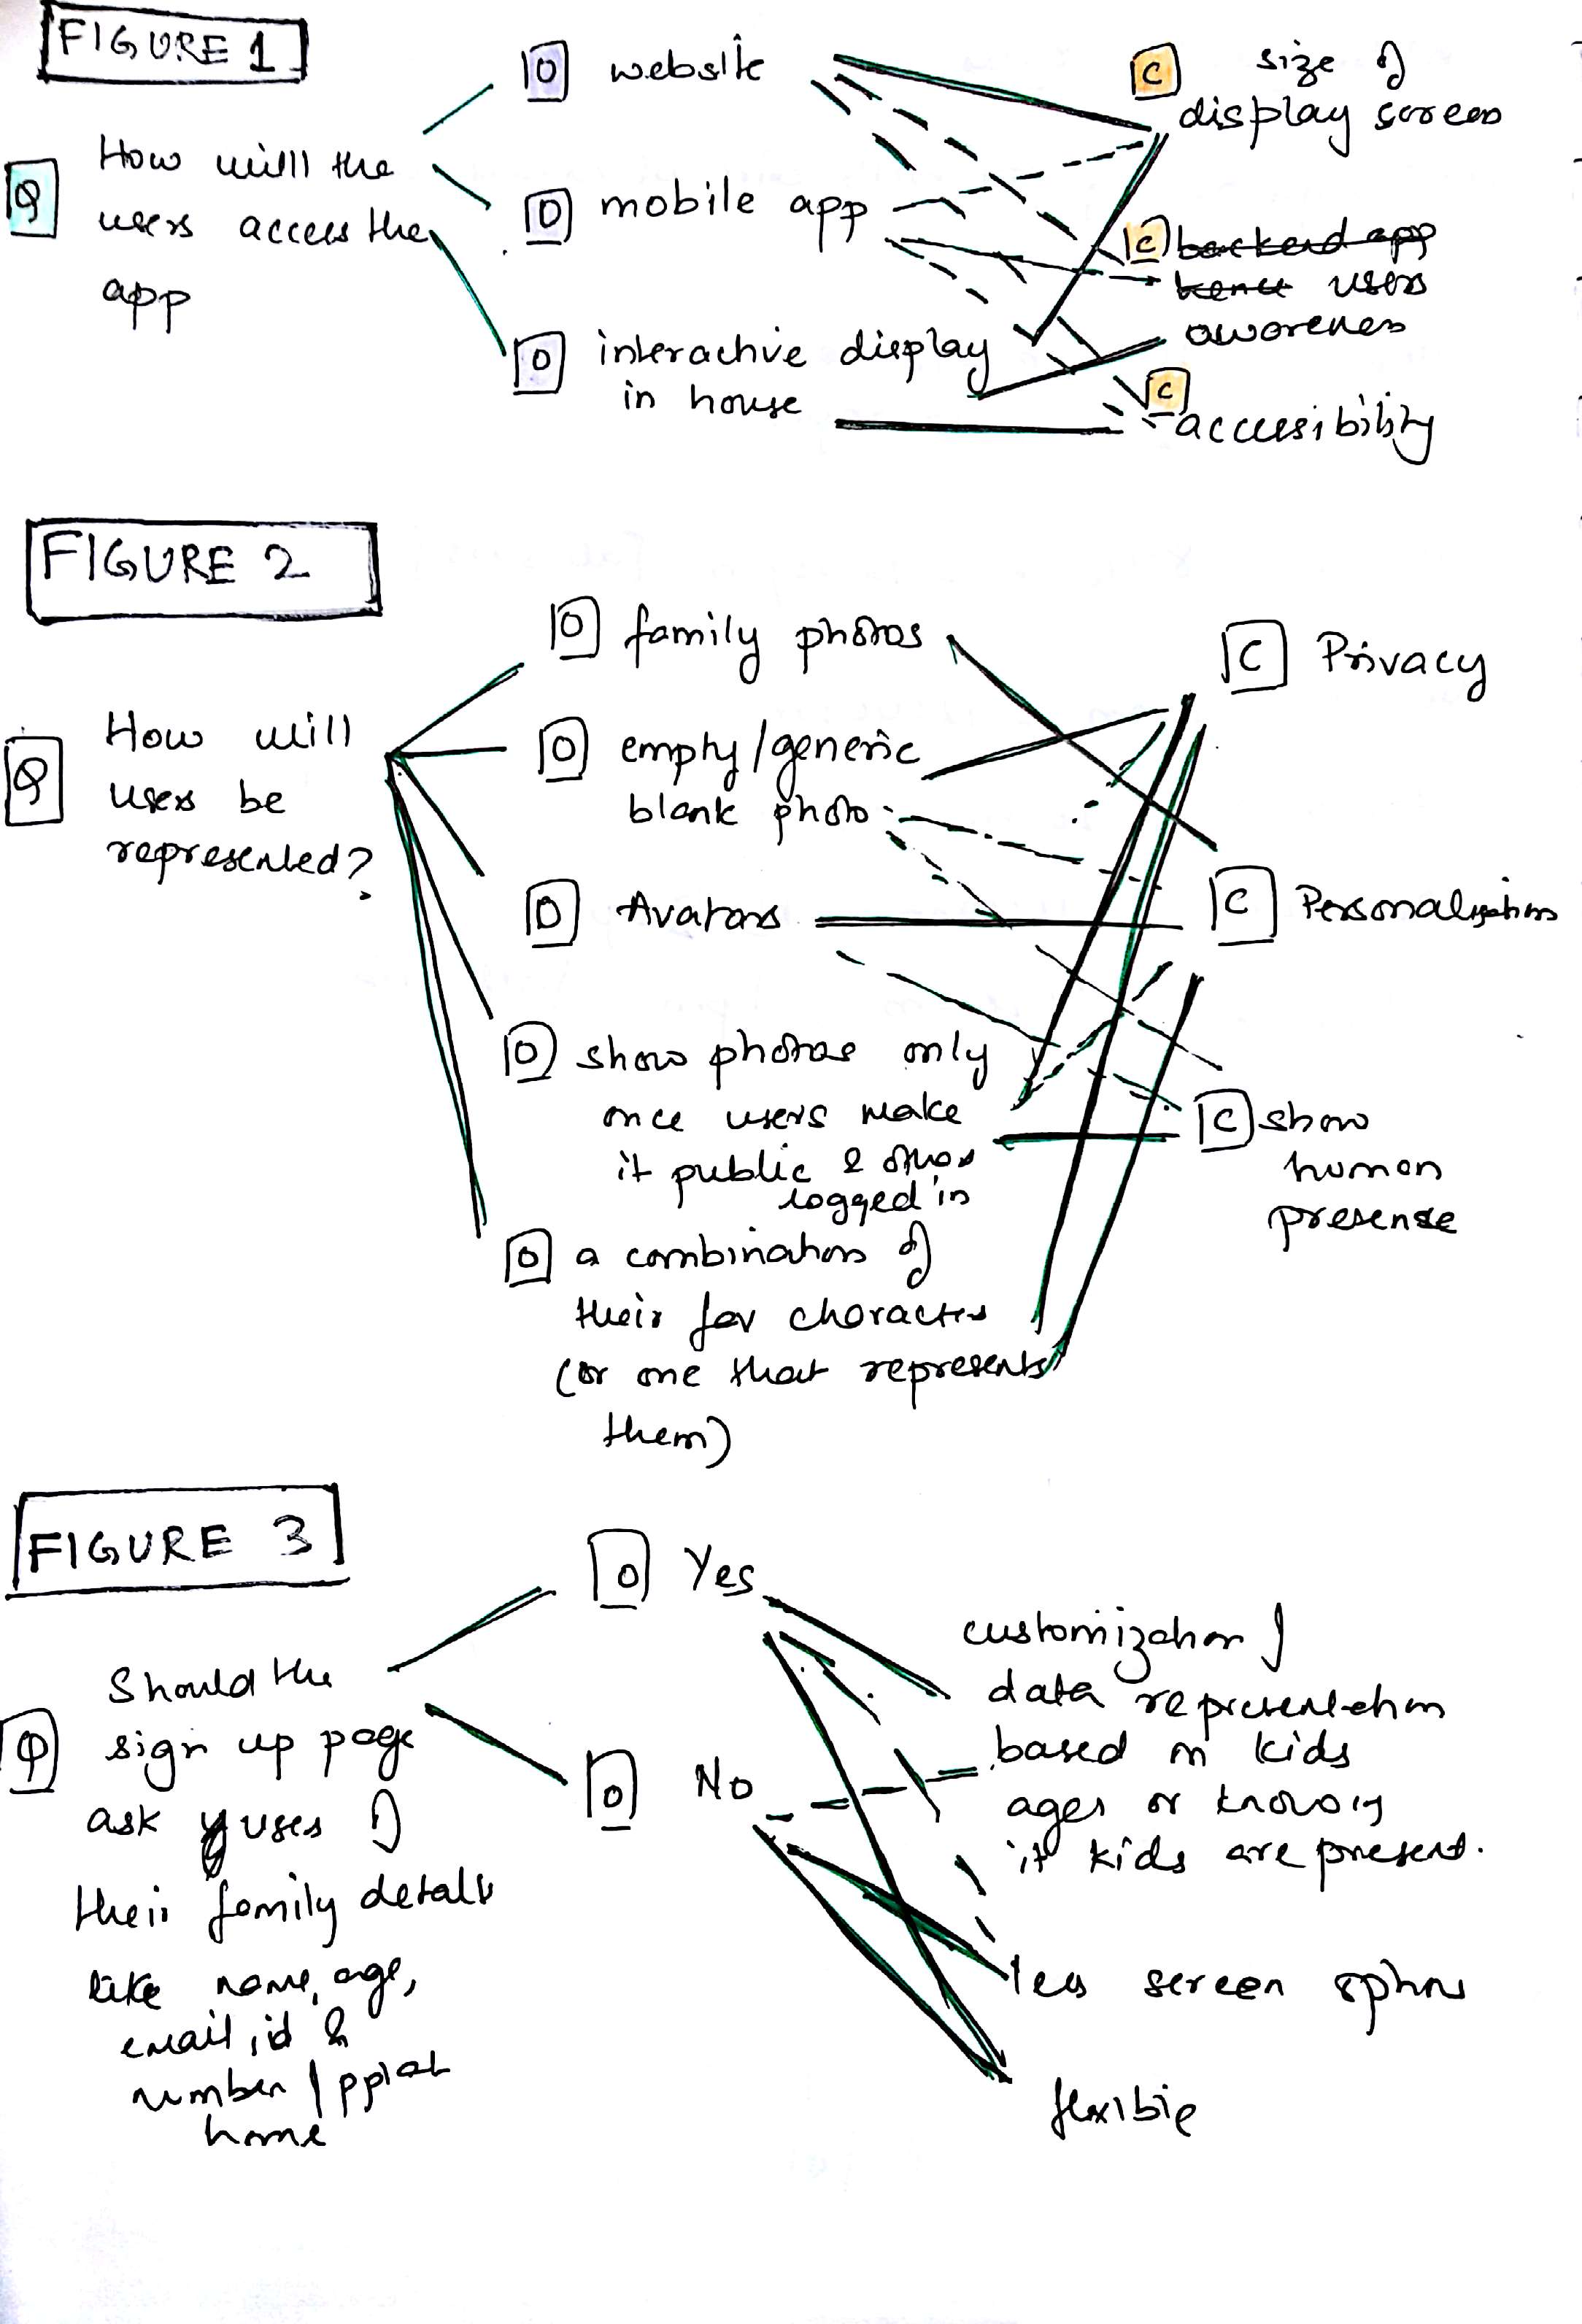 FIGURE 1
Q How will the
users access the
app
O website
O mobile app
O interactive display
in house
C size of
display screen
C backend app
hence users
awareness
C accessibility
FIGURE 2
Q How will
users be
represented?
O family photos
O empty/generic
blank photo
O Avatars
O show photos only
once users make
it public & once
logged in
O a combination of
their fav characters
(or one that represents
them)
C Privacy
C Personalization
C show
human
presense
FIGURE 3
Should the
Q sign up page
ask users of
their family details
like name, age,
email, id &
number / ppl at
home
O Yes
O No
customization of
data representation
based on kids
ages or knowing
if kids are present.
less screen options
flexible